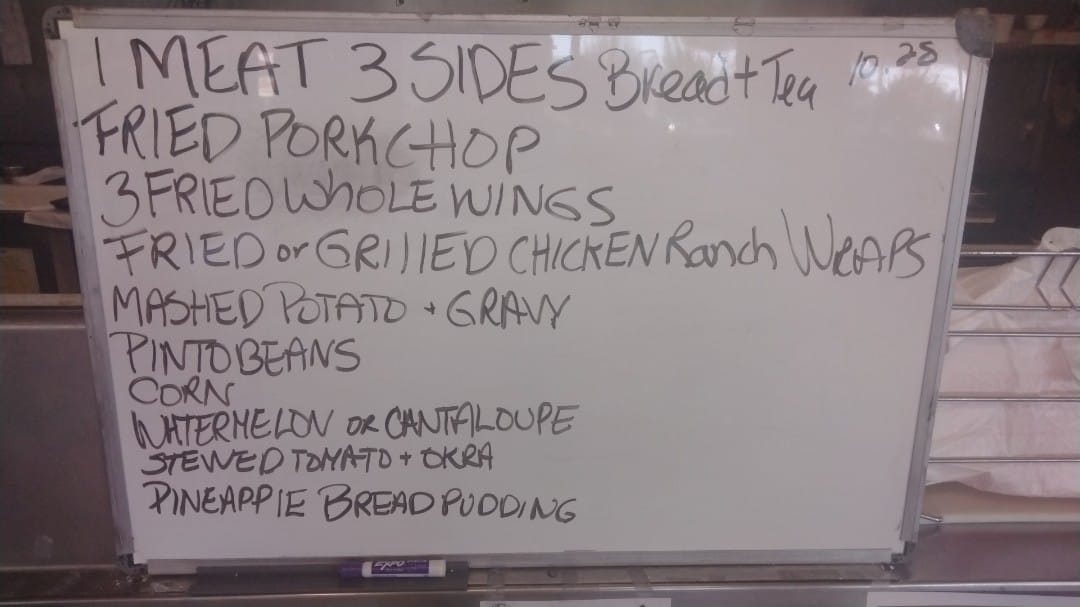 1 MEAT 3 SIDES Bread + Tea 10.28
FRIED PORKCHOP
3 FRIED WHOLE WINGS
FRIED or GRILLED CHICKEN Ranch WRAPS
MASHED POTATO + GRAVY
PINTO BEANS
CORN
WATERMELON OR CANTALOUPE
STEWED TOMATO + OKRA
PINEAPPLE BREAD PUDDING
EXPO